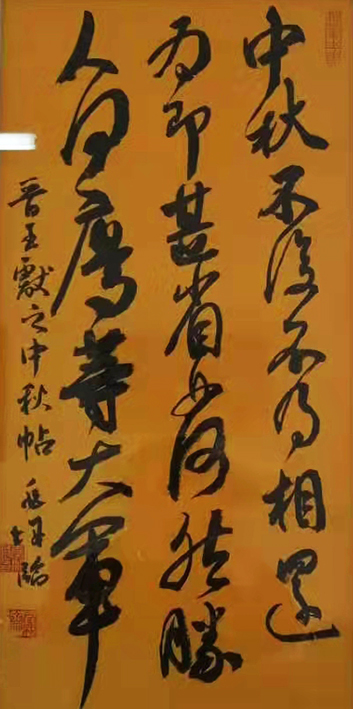 中秋不復不得相還
為即甚省如何然勝
人何慶等大軍
晉王獻之中秋帖
臨